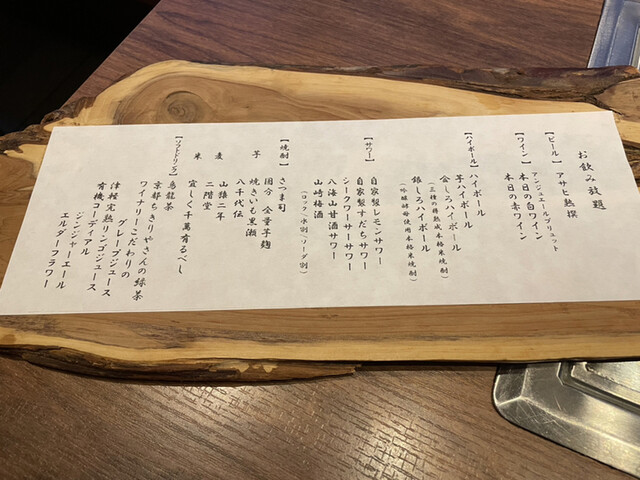 お飲み放題
【ビール】アサヒ熟撰
アンジュエールブリュット
【ワイン】本日の白ワイン
本日の赤ワイン
【ハイボール】ハイボール
芋ハイボール
金しろハイボール
(三種の樽熟成本格米焼酎)
銀しろハイボール
(吟醸酵母使用本格米焼酎)
【サワー】自家製レモンサワー
自家製すだちサワー
シークワーサーサワー
八海山甘酒サワー
山崎梅酒
(ロック/水割/ソーダ割)
【焼酎】さつま司
芋 国分 全量芋麹
焼きいも黒瀬
八千代伝
麦 山猿二年
二階堂
米 宜しく千萬有るべし
【ソフトドリンク】烏龍茶
京都ちきりやさんの緑茶
ワイナリーこだわりの
グレープジュース
津軽完熟リンゴジュース
有機コーディアル
ジンジャーエール
エルダーフラワー